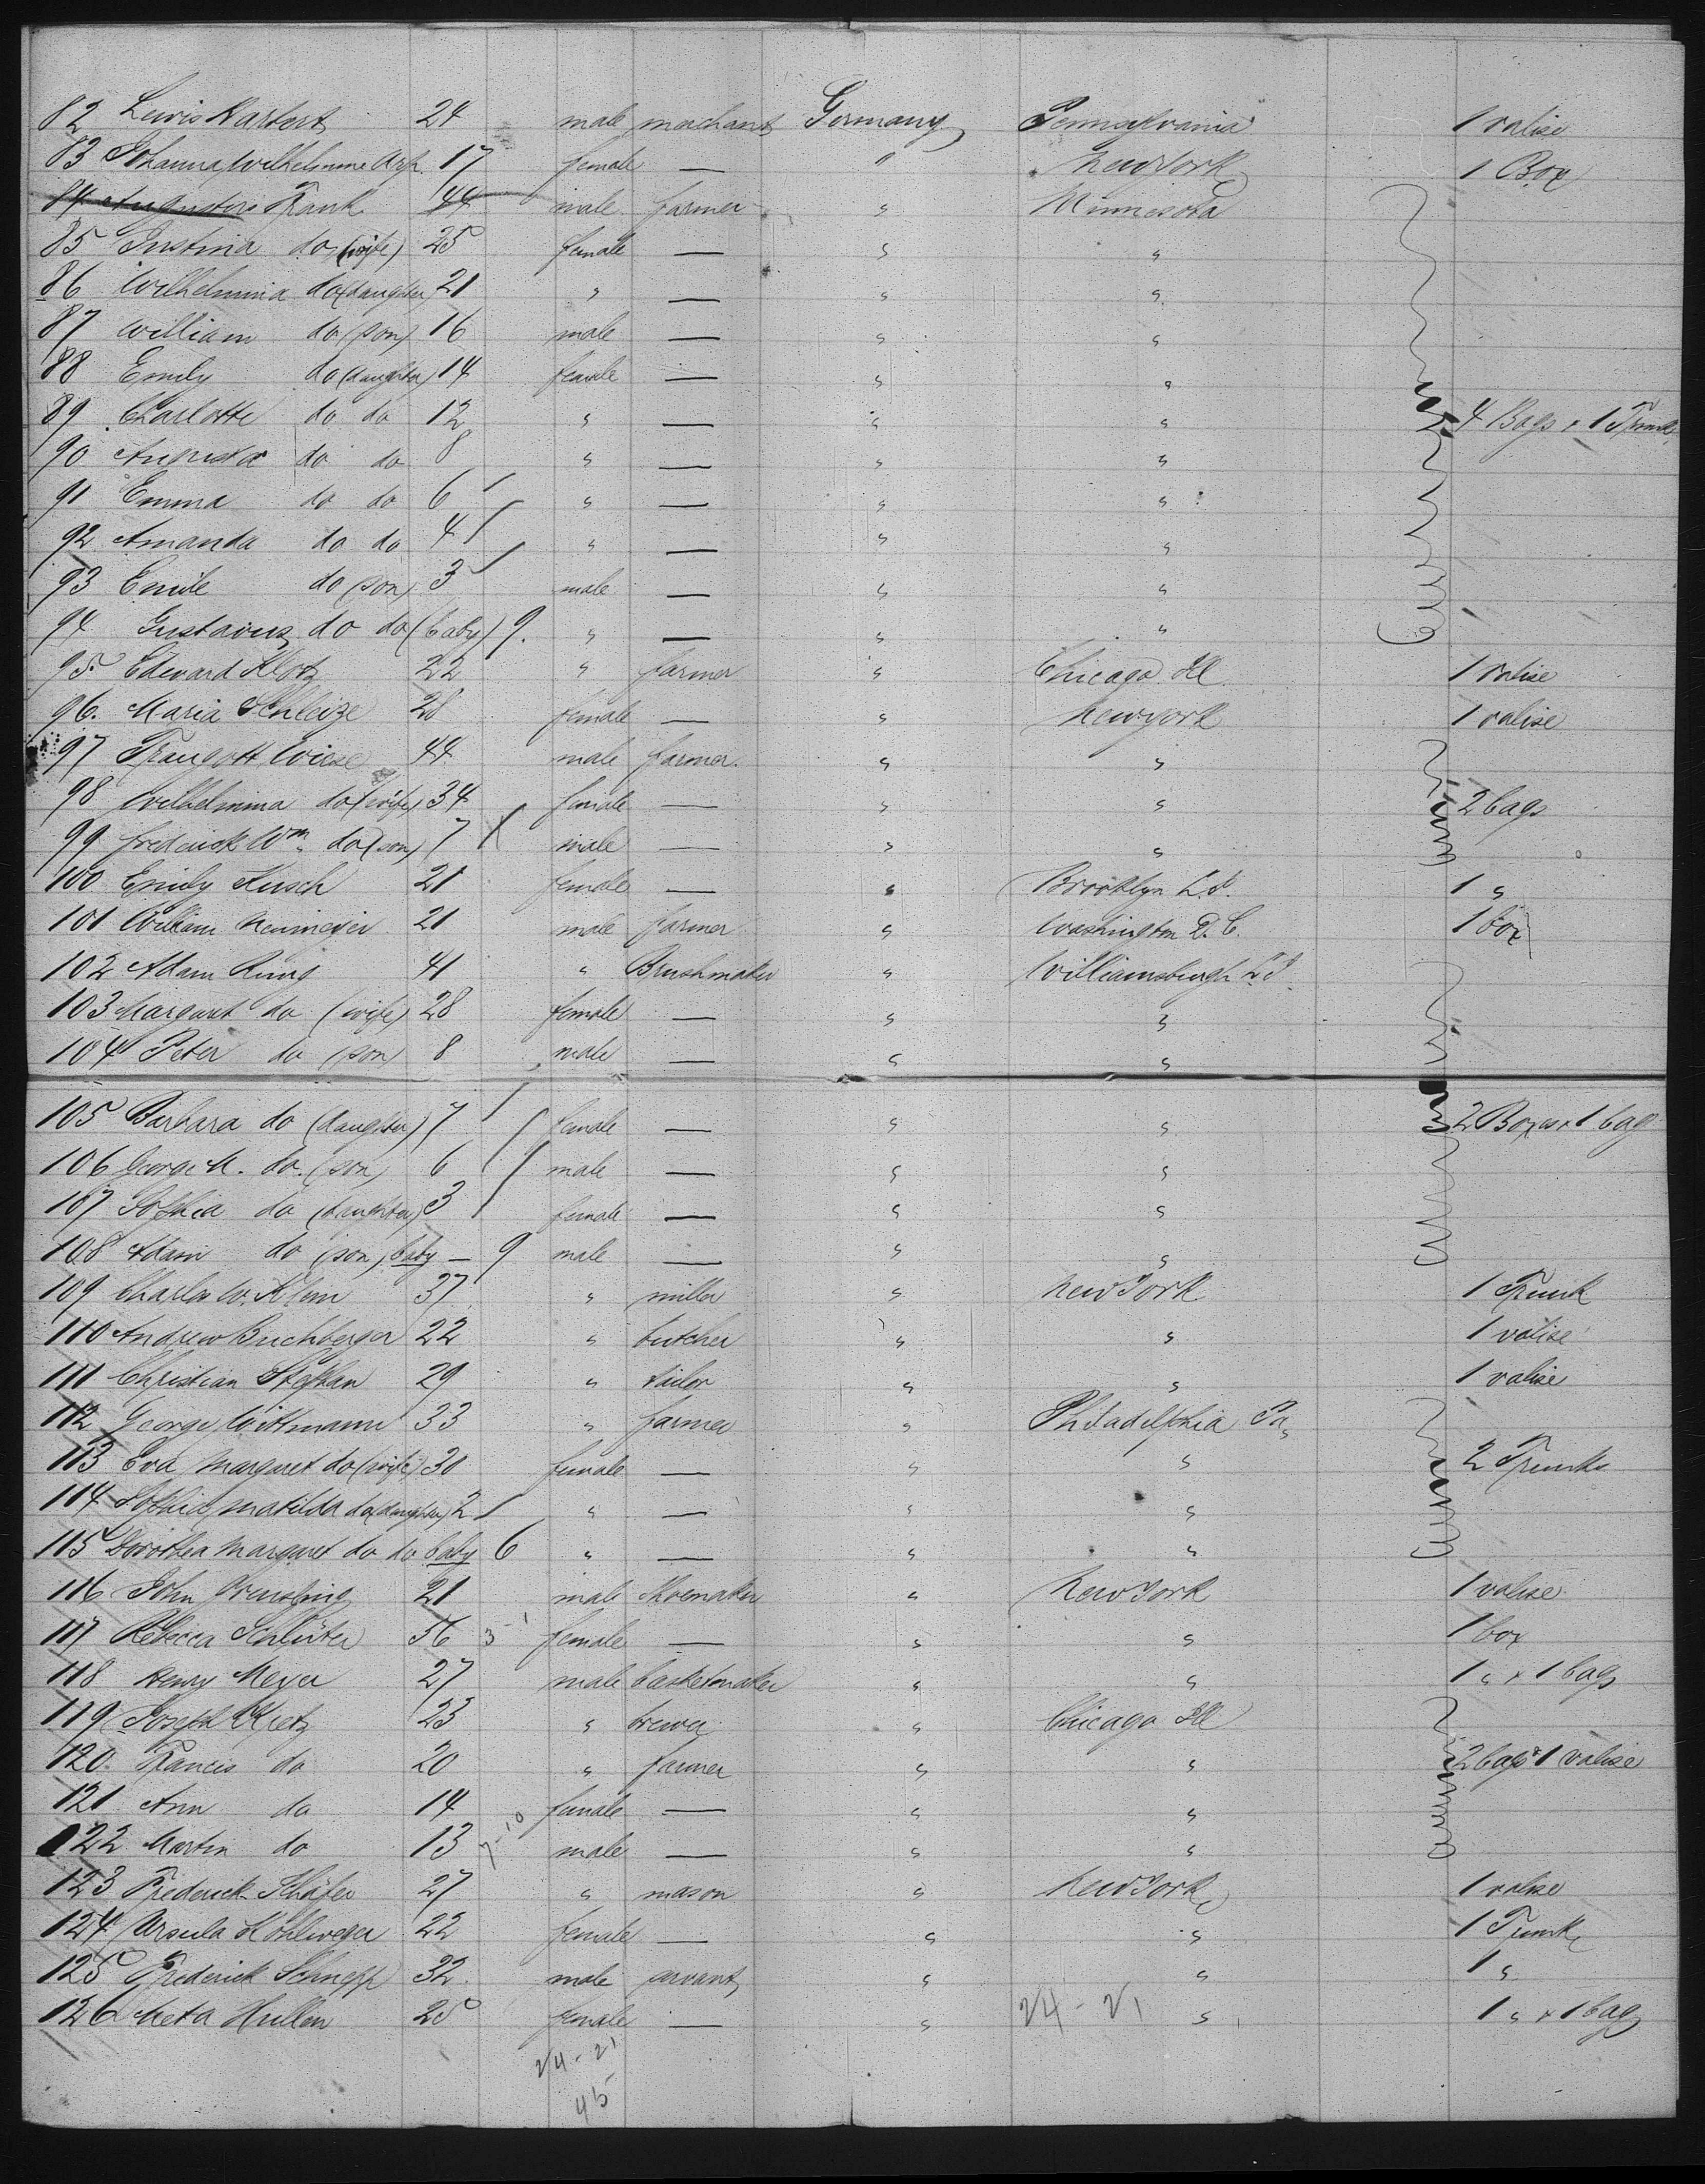 82 Lewis 24 male machant Germany Pennsylvania 1 valise
83 Johanna Wilhelmine Arp. 17 female — " New York 1 Box
84 Augustus Rank 44 male farmer " Minnesota
85 Justina do (wife) 25 female — " "
86 Wilhelmina do (daughter) 21 " — " "
87 William do (son) 16 male — " "
88 Emily do (daughter) 14 female — " "
89 Charlotte do do 12 " — " " 4 Bags & 1 Trunk
90 Augusta do do 8 " — " "
91 Emma do do 6 " — " "
92 Amanda do do 4 " — " "
93 Emile do (son) 3 male — " "
94 Gustavus do do (baby) 9. " — " "
95 Edward Klotz 22 " farmer " Chicago Ill 1 valise
96. Maria Schleize 28 female — " New york 1 valise
97 Traugott Wiese 44 male farmer. " "
98 Wilhelmina do (wife) 34 female — " " 2 bags
99 Frederick Wm. do (son) 7 male — " "
100 Emily Kusch 21 female — " Brooklyn L.I. 1 "
101 William Neumeyer 21 male farmer " Washington D.C. 1 box
102 Adam Rung 41 " Brushmaker " Williamsburgh L.I.
103 Margaret do (wife) 28 female — " "
104 Peter do (son) 8 male — " "
105 Barbara do (daughter) 7 female — " " 2 Boxes & 1 bag
106 George M. do. (son) 6 male — " "
107 Sophia do (daughter) 3 female — " "
108 Adam do (son) baby — 9 male — " "
109 Charles W. Klein 37 " miller " New York 1 Trunk
110 Andrew Buchberger 22 " butcher " " 1 valise
111 Christian Stephan 29 " tailor " " 1 valise
112 George Wittmann 33 " farmer " Philadelphia Pa
113 Eva Margaret do (wife) 30 female — " " 2 Trunks
114 Sophia Matilda do (daughter) 2 " — " "
115 Dorothea Margaret do do baby 6 " — " "
116 John 21 male Shoemaker " New York 1 valise
117 Rebecca Schlüter 56 female — " " 1 box
118 Henry Meyer 27 male basketmaker " " 1 " & 1 bags
119 Joseph 23 " brewer " Chicago Ill
120. Francis do 20 " farmer " " 2 bags & 1 valise
121 Ann do 14 female — " "
122 Martin do 13 male — " "
7-10
123 Frederick Schäfer 27 " mason " New York 1 valise
124 Ursula Kohlweyer 22 female — " " 1 Trunk
125 Frederick Schnepp 32 male servant " " 1 "
126 Meta Hullen 25 female — " 24-21 " 1 " & 1 bag
24-21
45